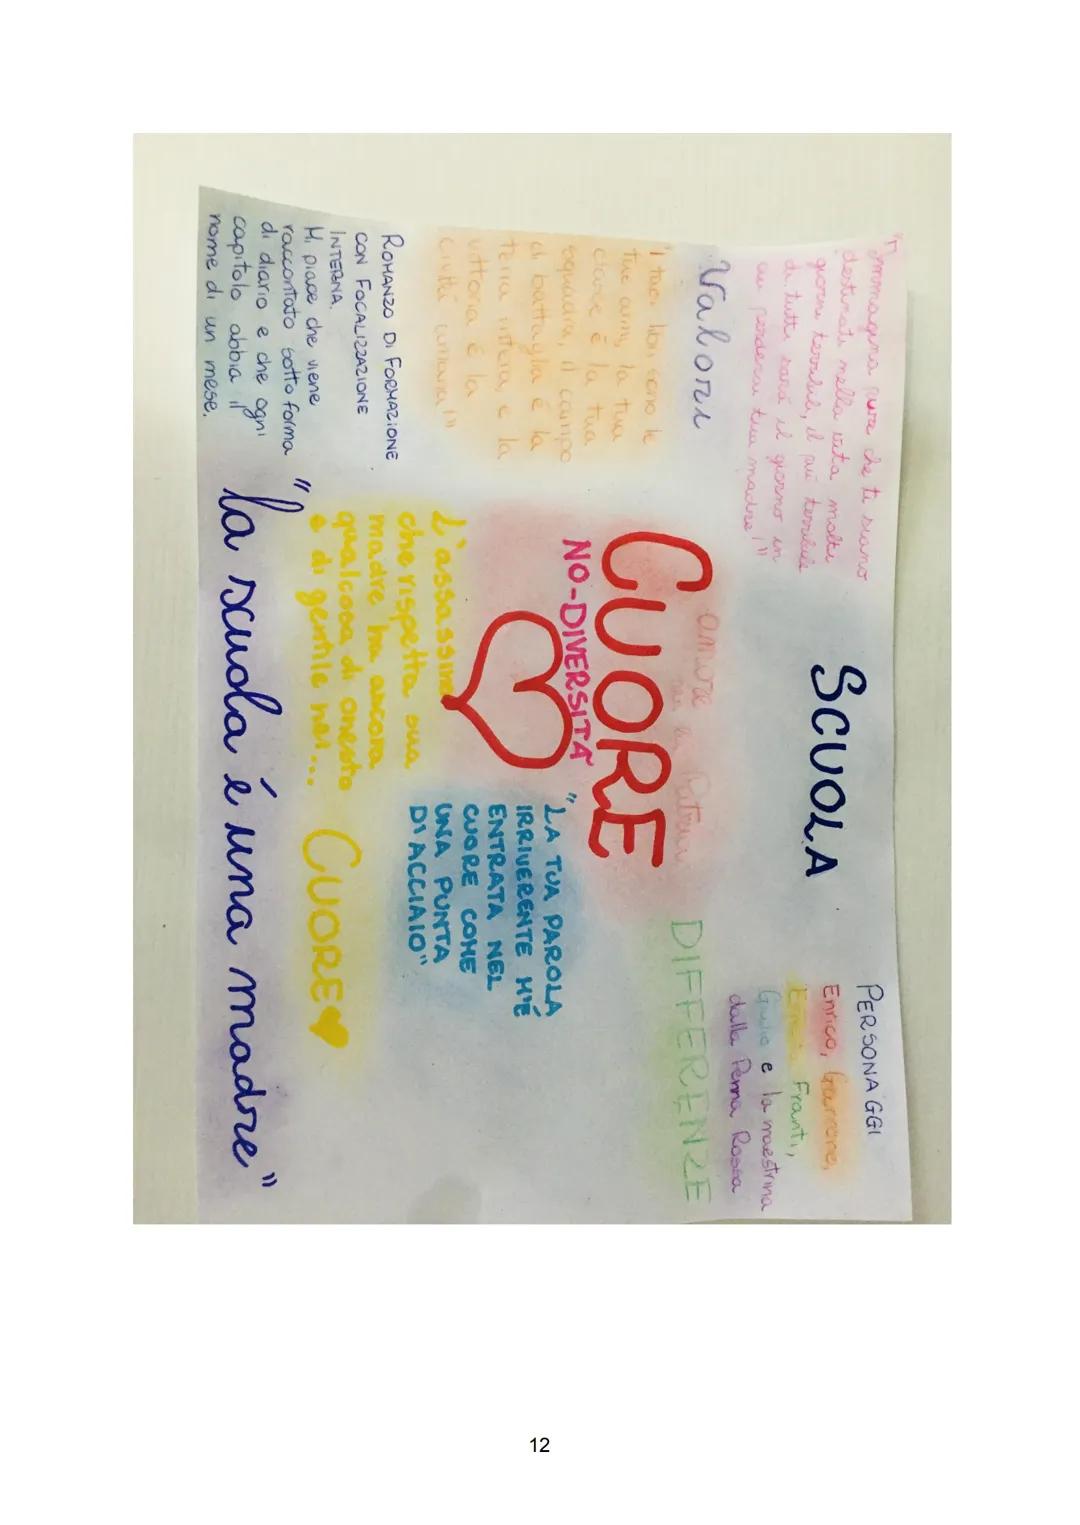 "Immagina pure che ti siano
destinati nella vita molti
giorni terribili, il più terribile
di tutti sarà il giorno in
cui perderai tua madre!"
SCUOLA
PERSONAGGI
Enrico, Garrone,
Franti,
Giulio e la maestrina
dalla Penna Rossa
Valori
amore
Patria
DIFFERENZE
"I tuoi libri sono le
tue armi, la tua
classe è la tua
squadra, il campo
di battaglia è la
terra intera, e la
vittoria è la
civiltà umana!"
CUORE
NO-DIVERSITÀ
"LA TUA PAROLA
IRRIVERENTE M'È
ENTRATA NEL
CUORE COME
UNA PUNTA
DI ACCIAIO"
ROMANZO DI FORMAZIONE
CON FOCALIZZAZIONE
INTERNA.
Mi piace che viene
raccontato sotto forma
di diario e che ogni
capitolo abbia il
nome di un mese.
L'assassino
che rispetta sua
madre ha ancora
qualcosa di onesto
e di gentile nel...
CUORE
"la scuola é una madre"
12